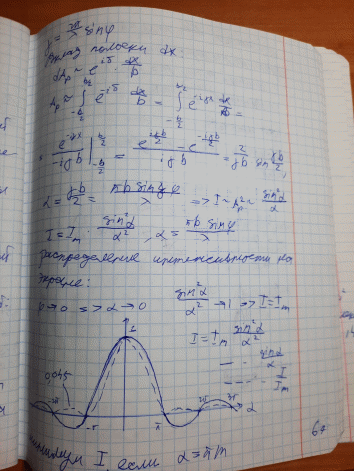 γ = 2π/λ sinφ
Вклад полоски dx
dAp ~ e^{iδ} dx/b
Ap ~ ∫_{-b/2}^{b/2} e^{-iδ} dx/b = ∫_{-b/2}^{b/2} e^{-iγx} dx/b =
= e^{-iγx}/(-iγb) |_{-b/2}^{b/2} = (e^{iγb/2} - e^{-iγb/2})/(iγb) = 2/(γb) sin γb/2,
α = γb/2 = πb sinφ/λ => I ~ Ap² ~ sin²α/α
I = Im sin²α/α², α = πb sinφ/λ
распределение интенсивности на
экране:
φ→0 => α→0 sin²α/α² →1 => I = Im
I = Im sin²α/α²
-- - sinα/α
— - I/Im
I
0,045
-2π -π π 2π 3π α
I, если α = πm
67